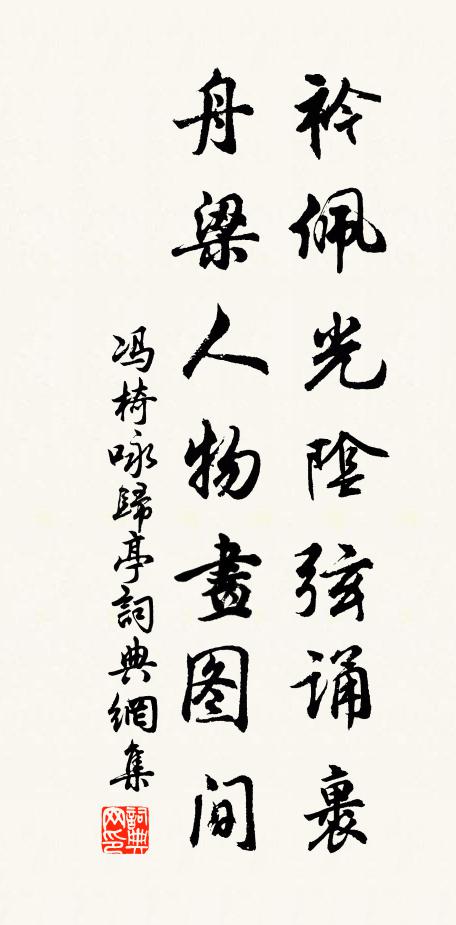 衿佩光陰弦诵裏
舟梁人物畫图間
冯椅咏歸亭詞典網集
詞典网印